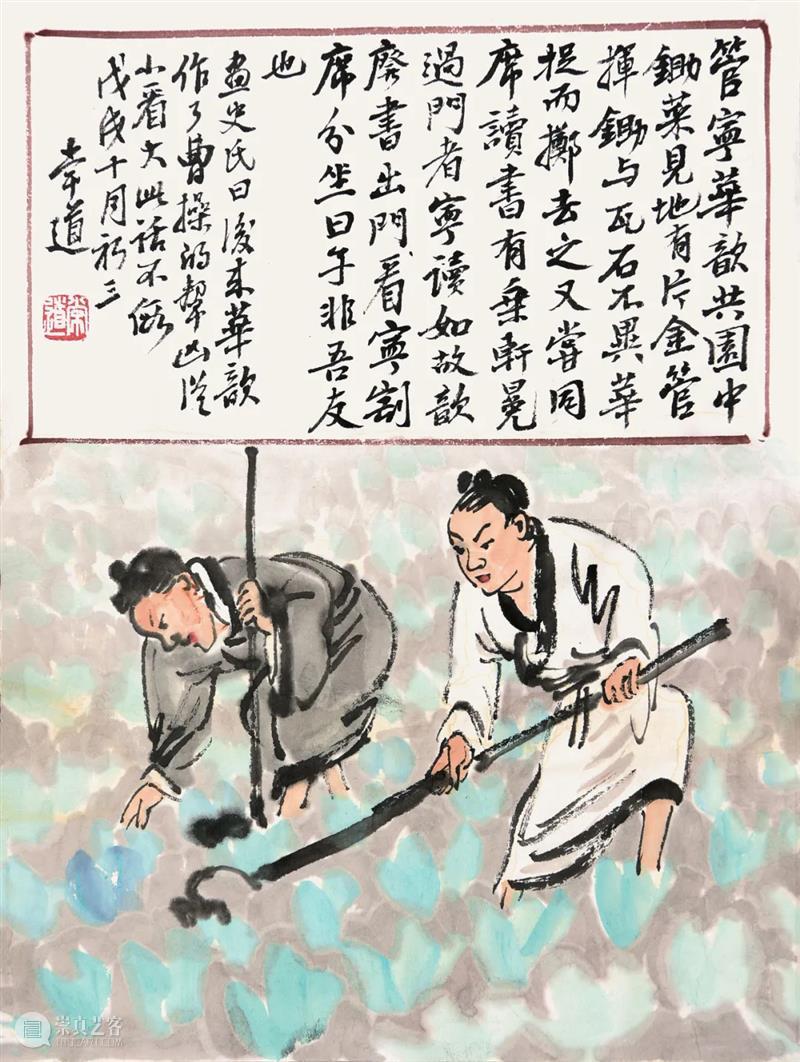 管寧華歆共園中
鋤菜見地有片金管
揮鋤与瓦石不異華
捉而擲去之又嘗同
席讀書有乘軒冕
過門者寧讀如故歆
廢書出門看寧割
席分坐曰子非吾友
也
畫史氏曰後來華歆
作了曹操的幫凶從
小看大此話不假
戊戌十月初三
道
崇真艺客